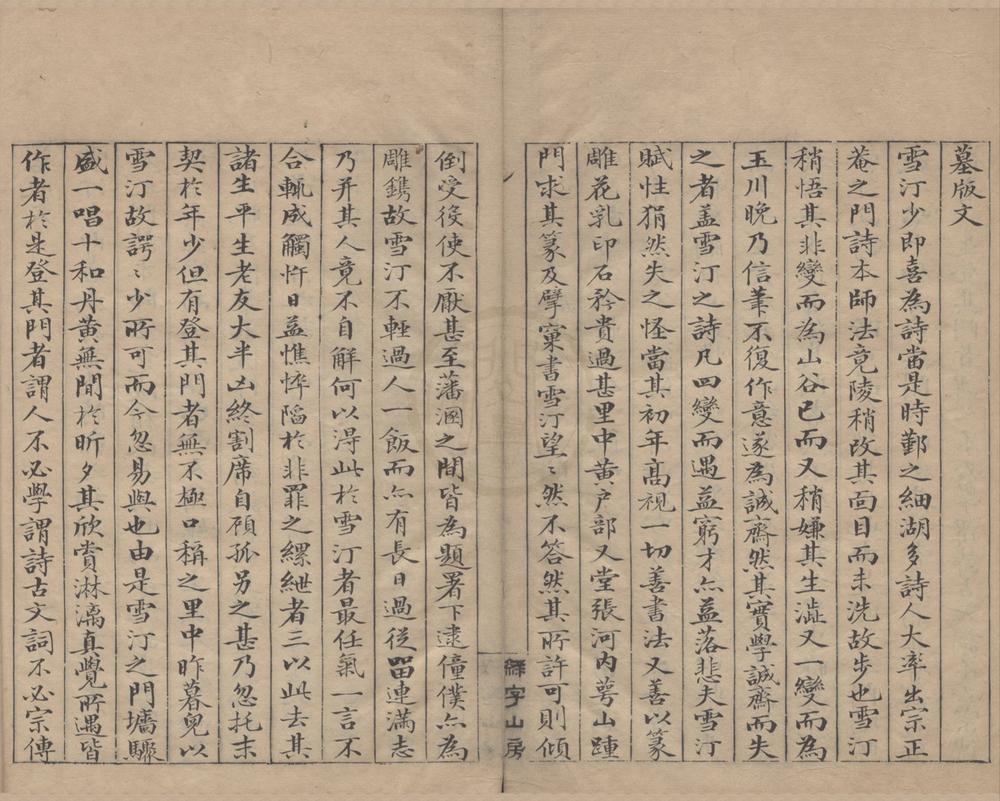 墓版文
雪汀少即喜為詩當是時鄞之細湖多詩人大率出宗正
菴之門詩本師法竟陵稍改其面目而未洗故步也雪汀
稍悟其非變而為山谷已而又稍嫌其生澁又一變而為
玉川晚乃信筆不復作意遂為誠齋然其實學誠齋而失
之者盖雪汀之詩凡四變而遇益窮才亦益落悲夫雪汀
賦性狷然失之怪當其初年髙視一切善書法又善以篆
雕花乳印石矜貴過甚里中黄户部又堂張河内萼山踵
門求其篆及擘窠書雪汀望〻然不答然其所許可則傾
倒受役使不厭甚至藩溷之間皆為題署下逮僮僕亦為
雕鐫故雪汀不輕過人一飯而亦有長日過從留連滿志
乃并其人竟不自解何以淂此於雪汀者最任氣一言不
合輒成觸忤日益憔悴陷於非罪之縲紲者三以此去其
諸生平生老友大半凶終割席自顧孤另之甚乃忽托末
契於年少但有登其門者無不極口稱之里中昨暮兒以
雪汀故諤〻少所可而今忽易與也由是雪汀之門墻驟
盛一唱十和丹黄無間於昕夕其欣賞淋漓真覺所遇皆
作者於是登其門者謂人不必學謂詩古文詞不必宗傳
緑字山房